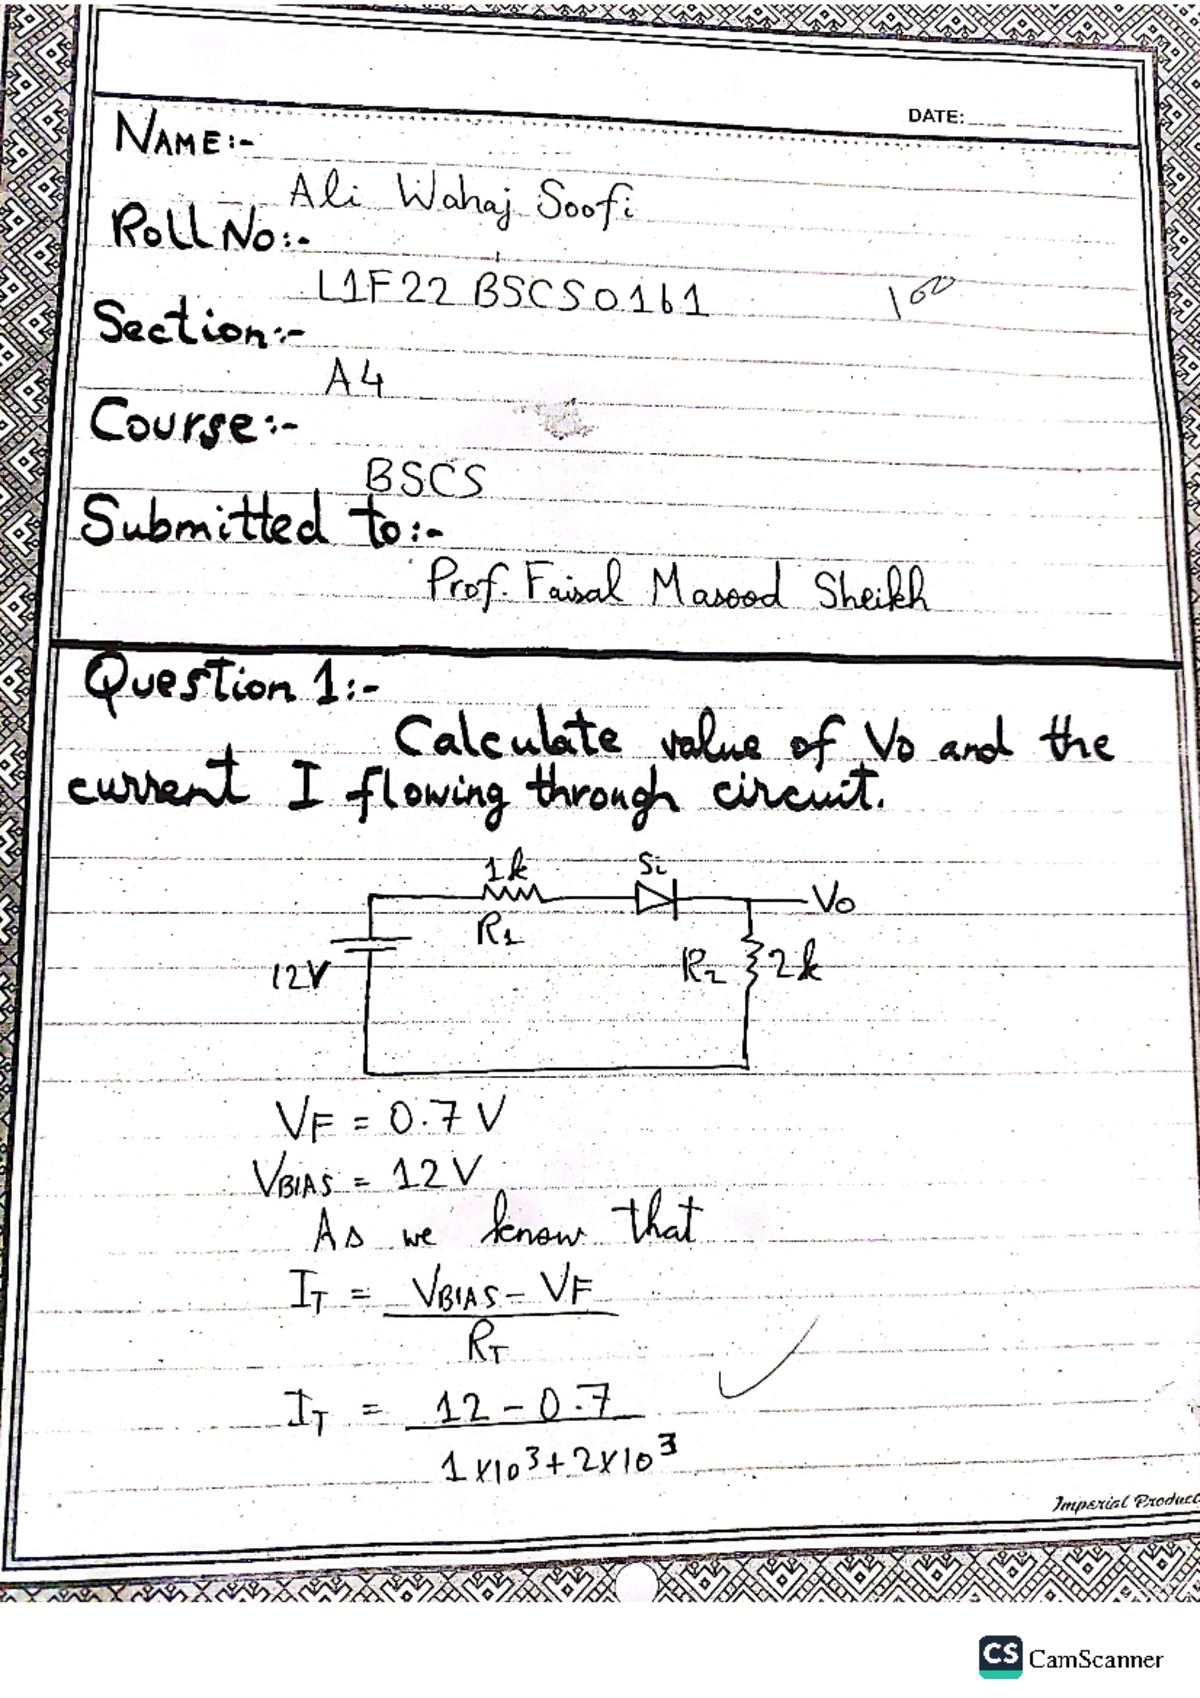 DATE:
NAME:-
Ali Wahaj Soofi
Roll No:-
L1F22 BSCS0161
100
Section:-
A4
Course:-
BSCS
Submitted to:-
Prof. Faisal Masood Sheikh
Question 1:-
Calculate value of Vo and the
current I flowing through circuit.
1k
Si
Vo
R1
12V
R2
2k
VF = 0.7 V
VBIAS = 12V
As we know that
IT = VBIAS - VF
RT
IT = 12 - 0.7
1×10³+2×10³
Imperial Product
CS CamScanner